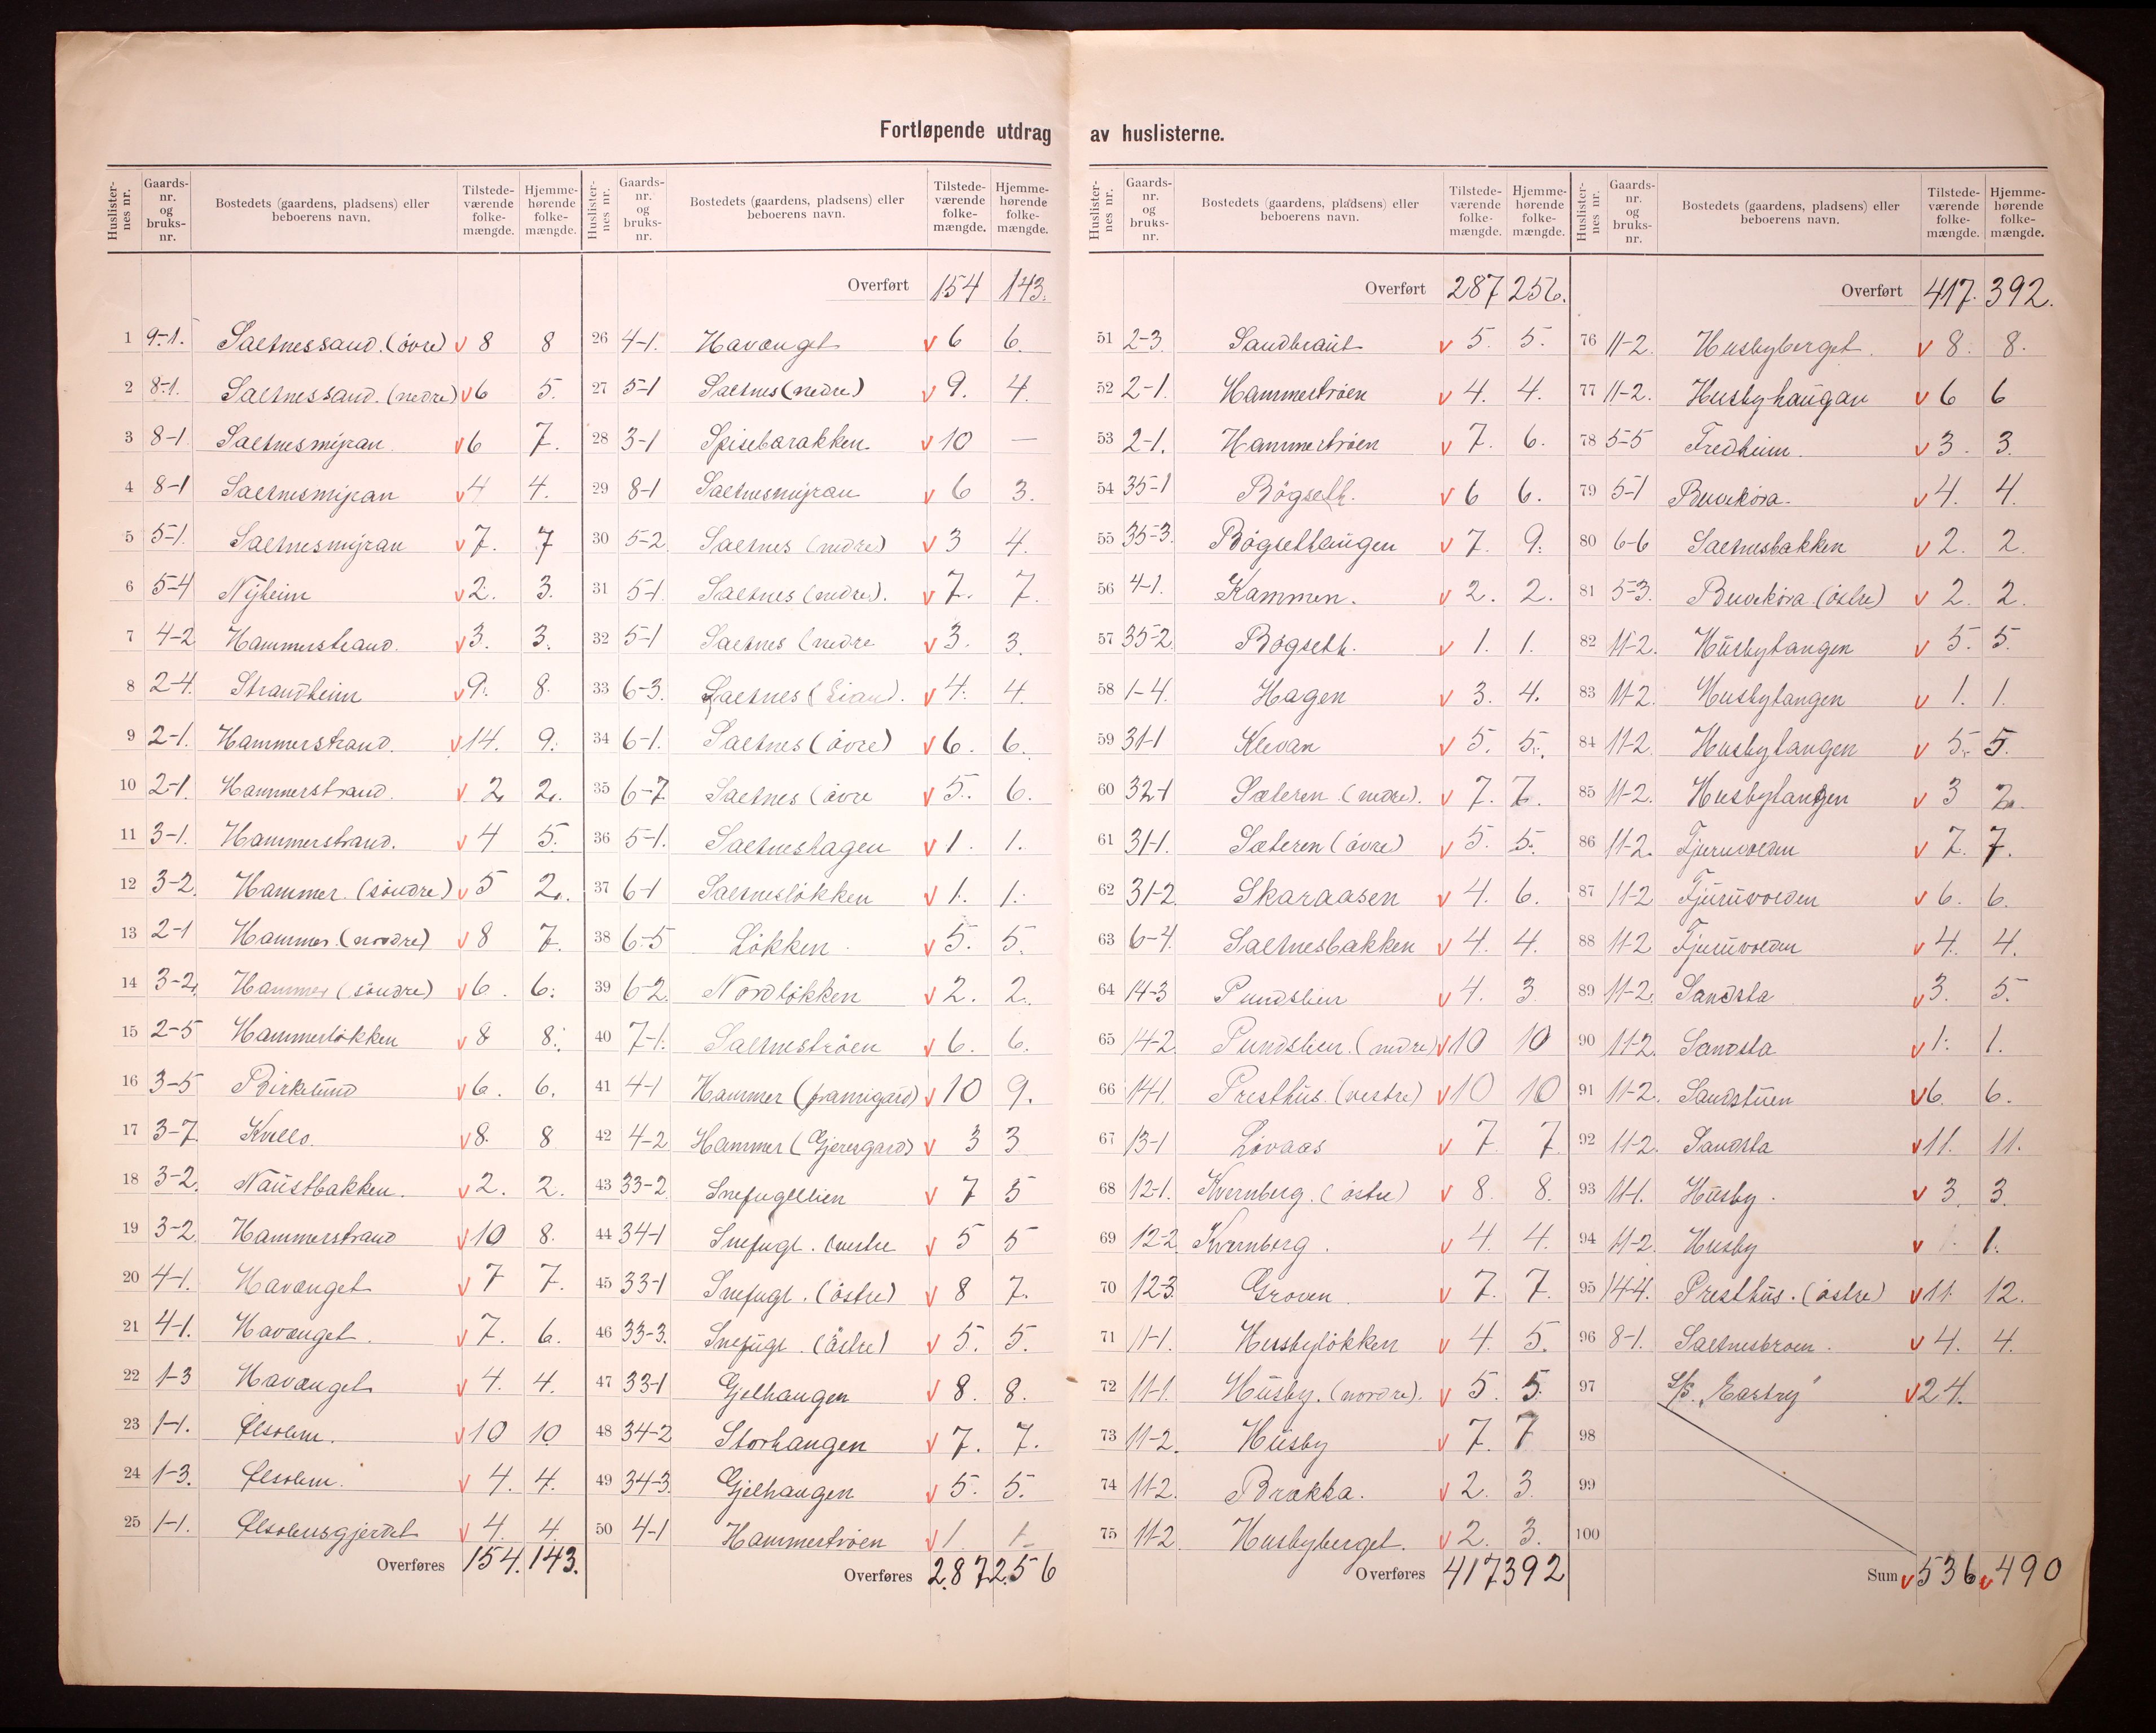 Fortløpende utdrag av huslisterne.
Huslister-nes nr. Gaards-nr. og bruks-nr. Bostedets (gaardens, pladsens) eller beboerens navn. Tilstede-værende folke-mængde. Hjemme-hørende folke-mængde.
1 9-1. Saltnessand. (övre) v 8 8
2 8-1. Saltnessand. (nedre) v 6 5.
3 8-1 Saltnesmÿran v 6 7.
4 8-1 Saltnesmÿran v 4 4.
5 5-1. Saltnesmÿran v 7. 7
6 5-4 Nÿheim v 2. 3.
7 4-2 Hammerstrand. v 3. 3.
8 2-4. Strandheim v 9. 8.
9 2-1. Hammerstrand. v 14. 9.
10 2-1. Hammerstrand. v 2 2.
11 3-1. Hammerstrand. v 4 5.
12 3-2. Hammer. (söndre) v 5 2.
13 2-1 Hammer. (nordre) v 8 7.
14 3-2. Hammer (söndre) v 6. 6.
15 2-5 Hammerlökken v 8 8.
16 3-5 Birkelund v 6. 6.
17 3-7. Kvello. v 8. 8
18 3-2. Naustbakken. v 2. 2.
19 3-2. Hammerstrand v 10 8.
20 4-1. Havænget v 7 7.
21 4-1. Havænget. v 7. 6.
22 1-3 Havænget v 4. 4.
23 1-1. Ølsolem. v 10 10
24 1-3. Ølsolem. v 4. 4.
25 1-1. Ølsolemsgjerdet v 4. 4.
Overføres 154. 143.
Huslister-nes nr. Gaards-nr. og bruks-nr. Bostedets (gaardens, pladsens) eller beboerens navn. Tilstede-værende folke-mængde. Hjemme-hørende folke-mængde.
Overført 154 143.
26 4-1. Havænget v 6 6.
27 5-1 Saltnes (nedre) v 9. 4.
28 3-1 Spisebarakken. v 10 —
29 8-1 Saltnesmÿran v 6 3.
30 5-2. Saltnes (nedre) v 3 4.
31 5-1. Saltnes (nedre). v 7. 7.
32 5-1 Saltnes (nedre v 3. 3.
33 6-3. Saltnes v 4. 4.
34 6-1. Saltnes (övre) v 6. 6.
35 6-7 Saltnes (övre v 5. 6.
36 5-1. Saltneshagen v 1. 1.
37 6-1 Saltneslökken v 1. 1.
38 6-5 Lökken. v 5. 5.
39 6-2. Nordlökken v 2. 2.
40 7-1. Saltneströen v 6. 6.
41 4-1 Hammer (framigard) v 10 9.
42 4-2 Hammer v 3 3
43 33-2. Snefugllien v 7 5
44 34-1 Snefugl. (vestre v 5 5
45 33-1 Snefugl. (östre) v 8 7.
46 33-3. Snefugl. (östre) v 5. 5.
47 33-1 Gjelhaugen v 8. 8.
48 34-2 Storhaugen v 7. 7.
49 34-3. Gjelhaugen v 5. 5.
50 4-1 Hammertröen v 1 1
Overføres 287 256
Huslister-nes nr. Gaards-nr. og bruks-nr. Bostedets (gaardens, pladsens) eller beboerens navn. Tilstede-værende folke-mængde. Hjemme-hørende folke-mængde.
Overført 287 256.
51 2-3. Sandbraut v 5. 5.
52 2-1. Hammertröen v 4. 4.
53 2-1. Hammertröen v 7. 6.
54 35-1 Bögseth. v 6 6.
55 35-3. Bögsethaugen v 7. 9.
56 4-1. Kammen. v 2. 2.
57 35-2. Bögseth. v 1. 1.
58 1-4. Hagen v 3. 4.
59 31-1 Klevan v 5. 5.
60 32-1 Sæteren (nedre). v 7. 7.
61 31-1. Sæteren (övre) v 5. 5.
62 31-2. Skaraasen v 4. 6.
63 6-4. Saltnesbakken v 4. 4.
64 14-3 Pundslien v 4. 3
65 14-2. Pundslien. (nedre) v 10 10
66 14-1. Presthus. (vestre) v 10 10
67 13-1 Lövaas v 7. 7.
68 12-1. Kvernberg. (östre) v 8. 8.
69 12-2. Kvernberg. v 4. 4.
70 12-3. Groven v 7. 7.
71 11-1. Husbylökken v 4. 5.
72 11-1. Husby. (nordre). v 5. 5.
73 11-2. Husby v 7. 7
74 11-2. Brækka. v 2. 3.
75 11-2. Husbyberget. v 2. 3.
Overføres 417 392
Huslister-nes nr. Gaards-nr. og bruks-nr. Bostedets (gaardens, pladsens) eller beboerens navn. Tilstede-værende folke-mængde. Hjemme-hørende folke-mængde.
Overført 417. 392.
76 11-2. Husbyberget. v 8. 8.
77 11-2. Husbyhaugan v 6 6
78 5-5 Fredheim. v 3. 3.
79 5-1 Buviköra. v 4. 4.
80 6-6 Saltnesbakken v 2. 2.
81 5-3. Buviköra (östre) v 2. 2.
82 11-2. Husbytangen v 5. 5.
83 11-2. Husbytangen v 1. 1.
84 11-2. Husbytangen v 5. 5.
85 11-2. Husbytangen v 3 2.
86 11-2. Fjeruvolden v 7. 7.
87 11-2 Fjeruvolden v 6. 6.
88 11-2 Fjeruvolden v 4. 4.
89 11-2. Sandsta v 3. 5.
90 11-2. Sandsta v 1. 1.
91 11-2. Sandstuen v 6. 6.
92 11-2. Sandsta v 11. 11.
93 11-1. Husby. v 3. 3.
94 11-2. Husby v 1 1.
95 14-4. Presthus. (östre) v 11. 12.
96 8-1. Saltnesbroen. v 4. 4.
97 S/S. "Eastry" v 24.
98
99
100
Sum v 536 v 490